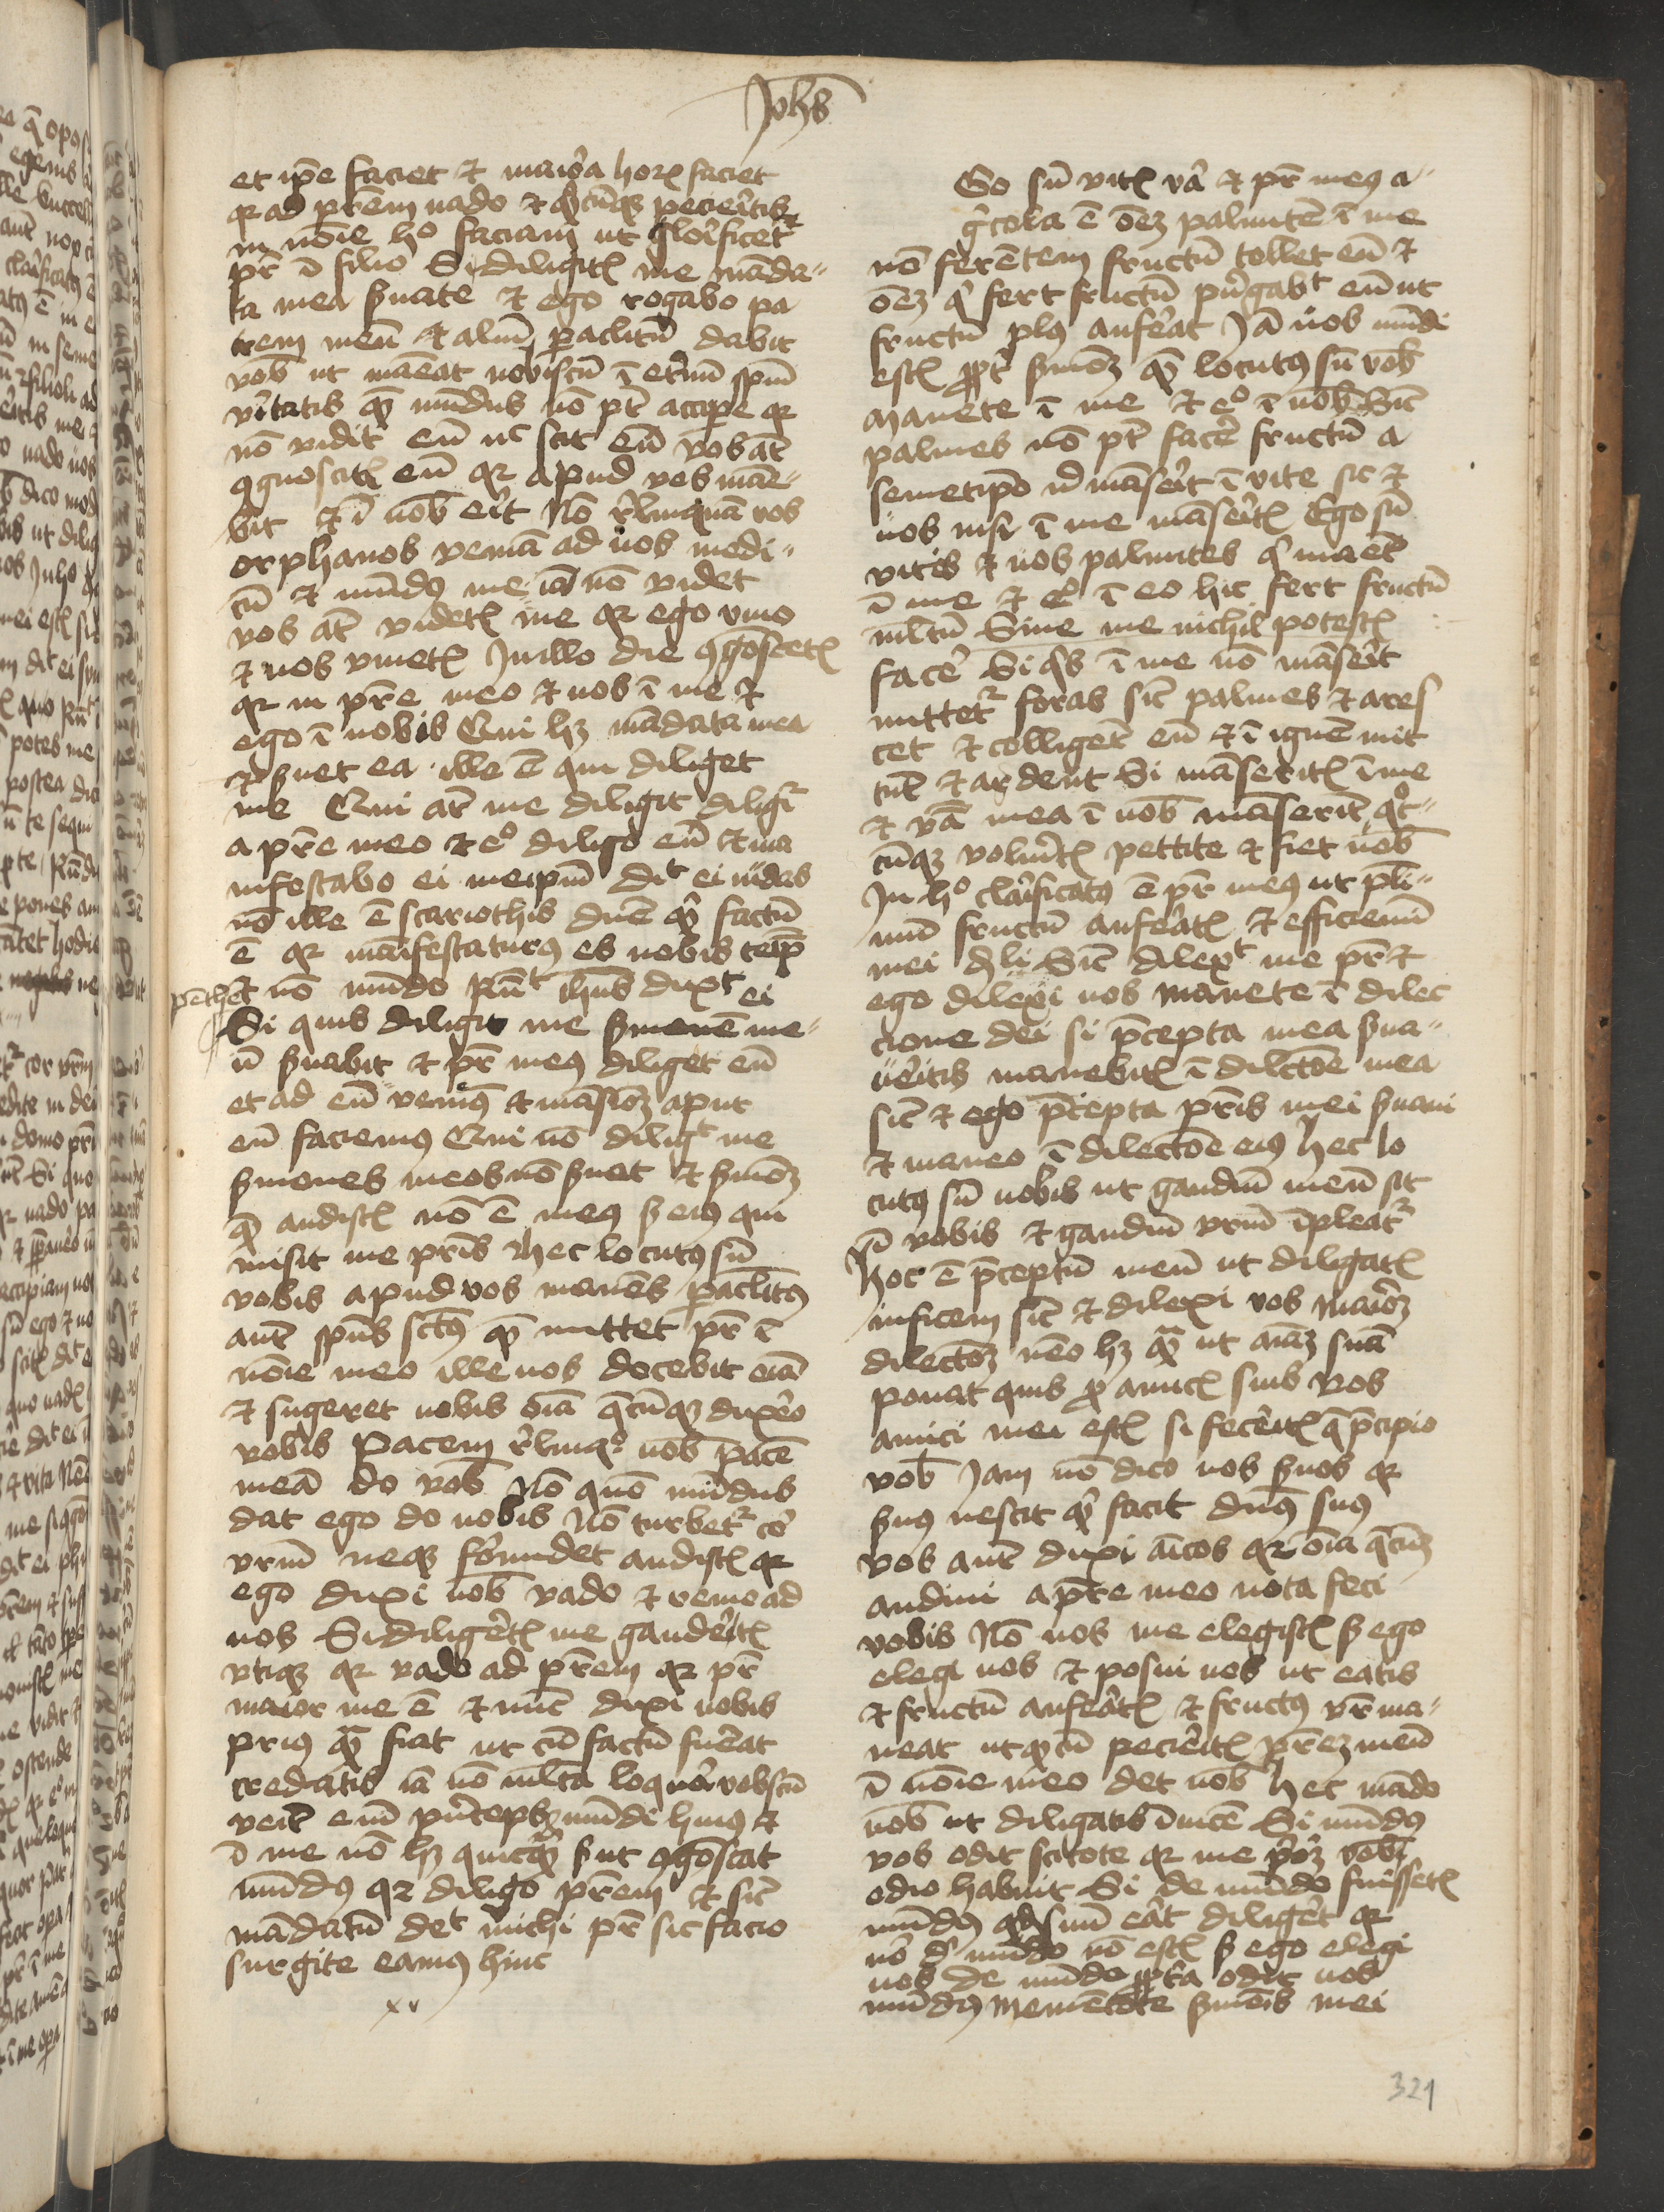 Johs
et ip̄e faciet et maiora horꝝ faciet
qr ad prēm uado et qͦcūqꝫ pecieritis
in nōie hͦ faciam ut glorificetʳ
pr̄ ī filio Si diligitꝭ me māda-
ta mea ẜuate et ego rogabo pa
trem meū et aliū ꝑaclitū dabit
vob̄ ut māeat nobiscū ī etnū spm̄
vitatis qm̄ mūdus nō pt̄ accipe qr
nō vidit eū nͨ scit eū vos at̄
ꝯgnoscitꝭ eū qr apud vos māe-
bit et ī nob̄ erit Nō rͤlinquā vos
orphanos veniā ad uos modi-
cū et mūdꝰ me iā nō videt
vos at̄ videtꝭ me qr ego viuo
et uos viuetꝭ In illo die ꝯgoscetꝭ
qr in pr̄e meo et uos ī me et
ego ī uobis Qui hꝫ mādata mea
et ẜuet ea ille ē qui diliget
me Qui at̄ me diligit diligʳ
a pr̄e meo et eͦ diligo eū et ma
nifestabo ei meip̄m dīt ei iudas
nō ille ē scariothis dnē qͥ factū
ē qr manifestaturꝰ es nobis teip̄
et nō mūdo Rn̄t ihus dixͭ ei
Si quis diligit me ẜmonē me-
ū ẜuabit et pr̄ meꝰ diliget eū
et ad eū veniēꝰ et māsioꝫ aput
eū faciemꝰ Qui nō diligͭ me
ẜmones meos nō ẜuet et ẜmoꝫ
qm̄ audistꝭ nō ē meꝰ ẜ eiꝰ qui
misit me pr̄is Hec locutꝰ sū
vobis apud vos manēs ꝑaclitꝰ
aut̄ sp̄us sctūs qm̄ mittet pr̄ ī
nōie meo ille uos docebit oīa
et sugeret uobis oīa qͣcūqꝫ dixero
vobis Pacem rͤlinqͦ uob̄ pacē
meā do vob̄ Nō quō mūdus
dat ego do uobis Nō turbetʳ cor
vrm̄ neqꝫ formidet audistꝭ qr
ego dixi uob̄ vado et venio ad
uos Si diligeretꝭ me gauderetꝭ
vtiqꝫ qr vado ad prēm qr pr̄
maior me ē et nūc dixi uobis
priꝰ qͣm fiat ut cū factū fuerat
credatis iā nō mlta loquor vobscū
veit̄ eni princeps mūdi huiꝰ et
ī me nō hꝫ quicqͣm ẜ ut ꝯgoscat
mūdꝰ qr diligo prēm et sic̄
mādatū detͭ michi pr̄ sic facio
surgite eamꝰ hinc
xv
Go sū vitꝭ va et pr̄ meꝰ a-
gͥcola ē oēꝫ palmitē ī me
nō ferētem fructū tollet eū et
oēꝫ qͥ fert fructū purgabͭ eū ut
fructū plꝰ anferat Jā uos mūdi
estꝭ ꝓpt ẜmoꝫ qm̄ locutꝰ sū vob̄
Manete ī me et eͦ ī uob̄ Sic̄
palmes nō pt̄ facere fructū a
semetipo nͥ māserit ī vite sic et
uos nisi ī me māseritꝭ Ego sū
vitis et uos palmites qͥ manet
ī me et eͦ ī eo hic fert fructū
mltū Sine me nichil potestꝭ
facere Si qͥs ī me nō māserit
mittetʳ foras sic̄ palmes et ares
cet et colliget̄ eū et ī ignē mit
tūt et ardent Si māseritꝭ ī me
et vā mea ī uob̄ māserīt qͦt-
cūqꝫ volueritꝭ pettite et fiet uob̄
In hͦ clarificatꝰ ē pr̄ meꝰ ut pli-
mū fructū anferatꝭ et efficiemī
mei dͥli Sic̄ dilexͭ me pr̄ et
ego dilexi uos manete ī dilec
cione dei si p̄cepta mea ẜua-
ueritis manebitꝭ ī dilctōe mea
sic̄ et ego p̄cepta pr̄is mei ẜuaui
et maneo ī dilectōe eiꝰ hec lo
cutꝰ sū uobis ut gaudiū meū sit
ī vobis et gaudiū vrm̄ īpleatʳ
hoc ē p̄ceptū meū ut diligatꝭ
inficem sic̄ et dilexi vos Maioꝫ
dilectōꝫ nēo hꝫ qͣm ut aīaꝫ suā
ponat quis ꝓ amicꝭ suis Vos
amici mei estꝭ si feceritꝭ q̄ p̄cipio
vob̄ Jam nō dico uos ẜuos qr
ẜuꝰ nescit qͥ facit dnūs suꝰ
vos aut̄ dixi aīcos qr oīa qͣcūqꝫ
audiui a pr̄e meo nota feci
vobis Nō uos me elegistꝭ ẜ ego
elegi uos et posui uos ut eatis
et fructū anferatꝭ et fructꝰ vr̄ ma-
neat ut qͦcū pecieritꝭ prēꝫ meū
ī nōie meo det uob̄ hec mādo
uob̄ ut diligatis īuicē Si mūdꝰ
vos odit scitote qr me prioꝫ vob̄
odio habuit Si de mūdo fuissetꝭ
mūdꝰ qd suū erat diligeret qr
nō dͤ mūdo nō estꝭ ẜ ego elegi
uos de mūdo ꝓpta odit uos
mūdꝰ Mementote ẜmōis mei
321